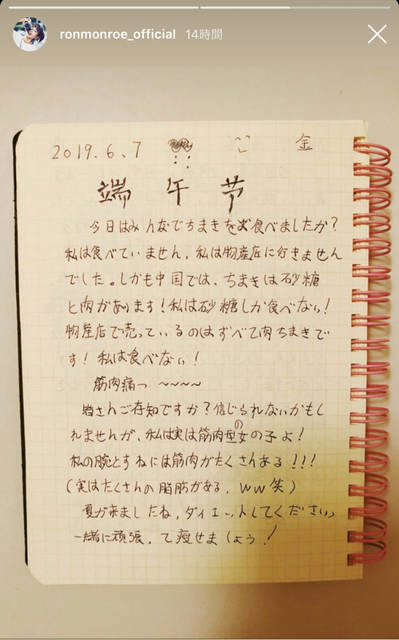 ronmonroe_official 14時間
2019.6.7 金
端午节
今日はみんなでちまきを食べましたか?
私は食べていません,私は物産店に行きません
でした。しかも中国では、ちまきは砂糖
と肉があります!私は砂糖しか食べない!
物産店で売っているのはすべて肉ちまきで
す!私は食べない!
筋肉痛っ~~~~
皆さんご存知ですか?信じられないかもし
れませんが、私は実は筋肉型の女の子よ!
私の腕とすねには筋肉がたくさんある!!!
(実はたくさんの脂肪がある,ww笑)
夏が来ましたね,ダイエットしてくださいっ
一緒に頑張って痩せましょう!